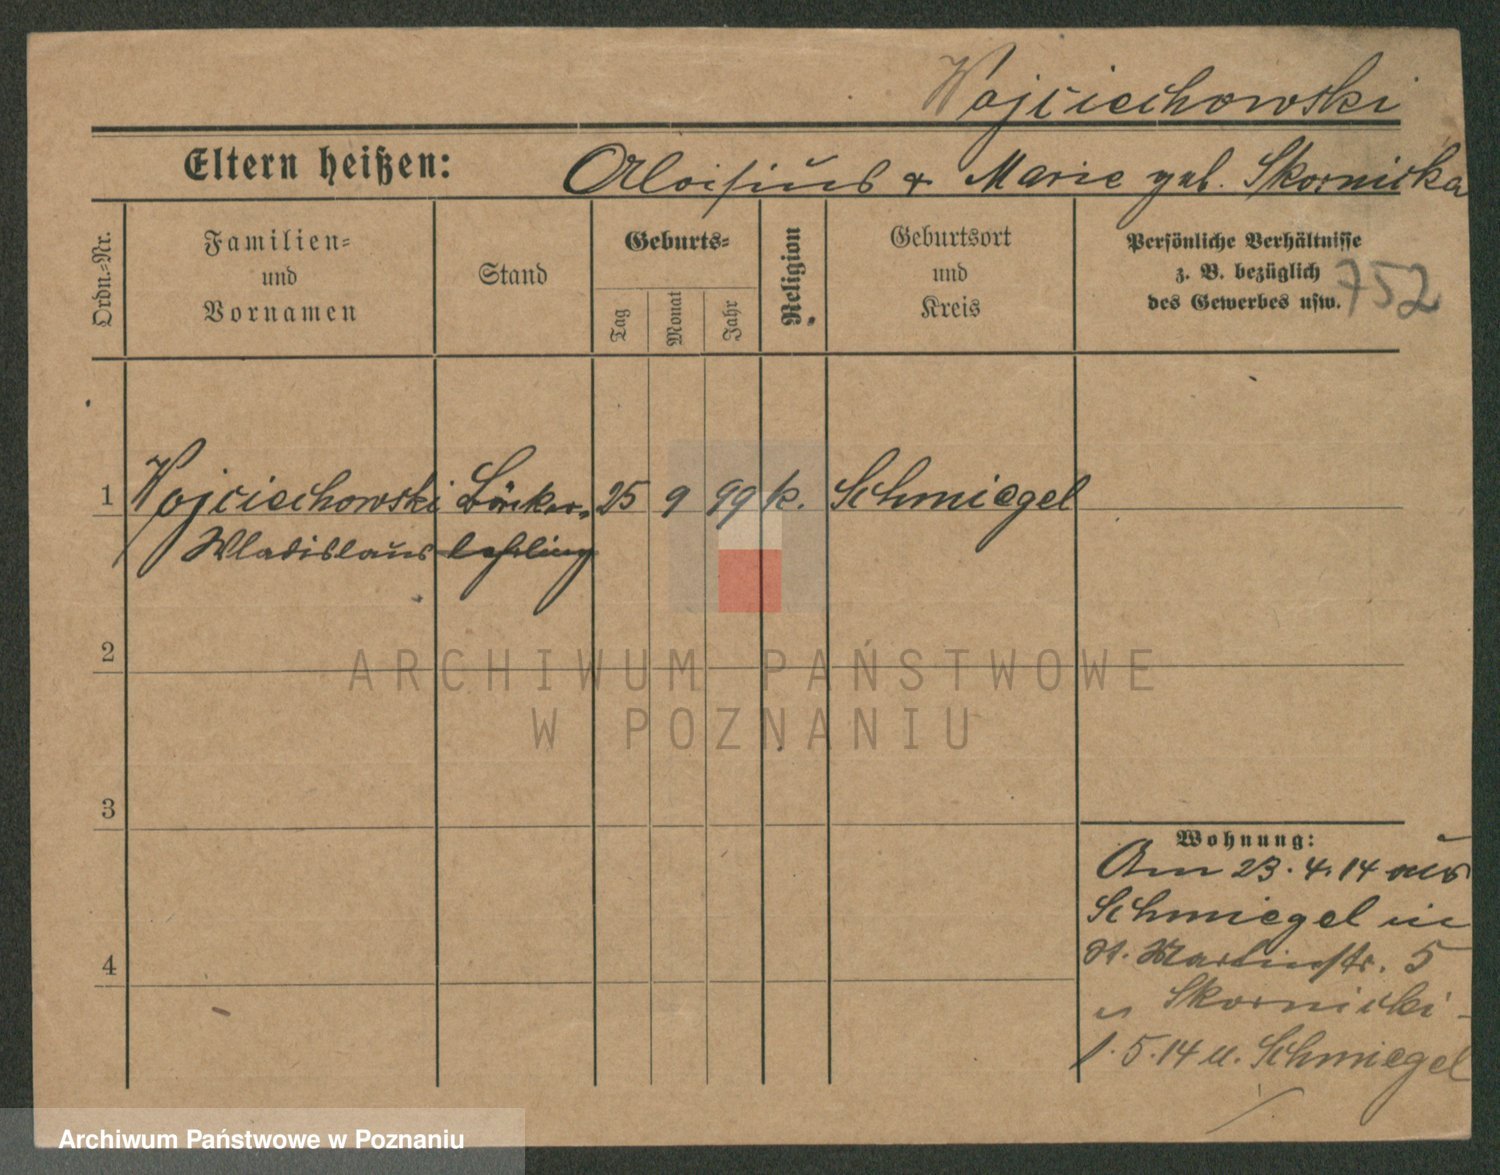 Wojciechowski
Eltern heißen: Aloisius & Marie geb. Skornicka
Ordn.=Nr.
Familien=
und
Vornamen
Stand
Geburts=
Tag
Monat
Jahr
Religion
Geburtsort
und
Kreis
Persönliche Verhältnisse
z. B. bezüglich
des Gewerbes usw.
752
1 Wojciechowski Bäcker= 25 9 99 k. Schmiegel
Wladislaus lehrling
2
3
4
Wohnung:
Am 23.4.14 aus
Schmiegel in
St. Martinstr. 5
Skornicki
1.5.14 n. Schmiegel
ARCHIWUM PAŃSTWOWE
W POZNANIU
Archiwum Państwowe w Poznaniu